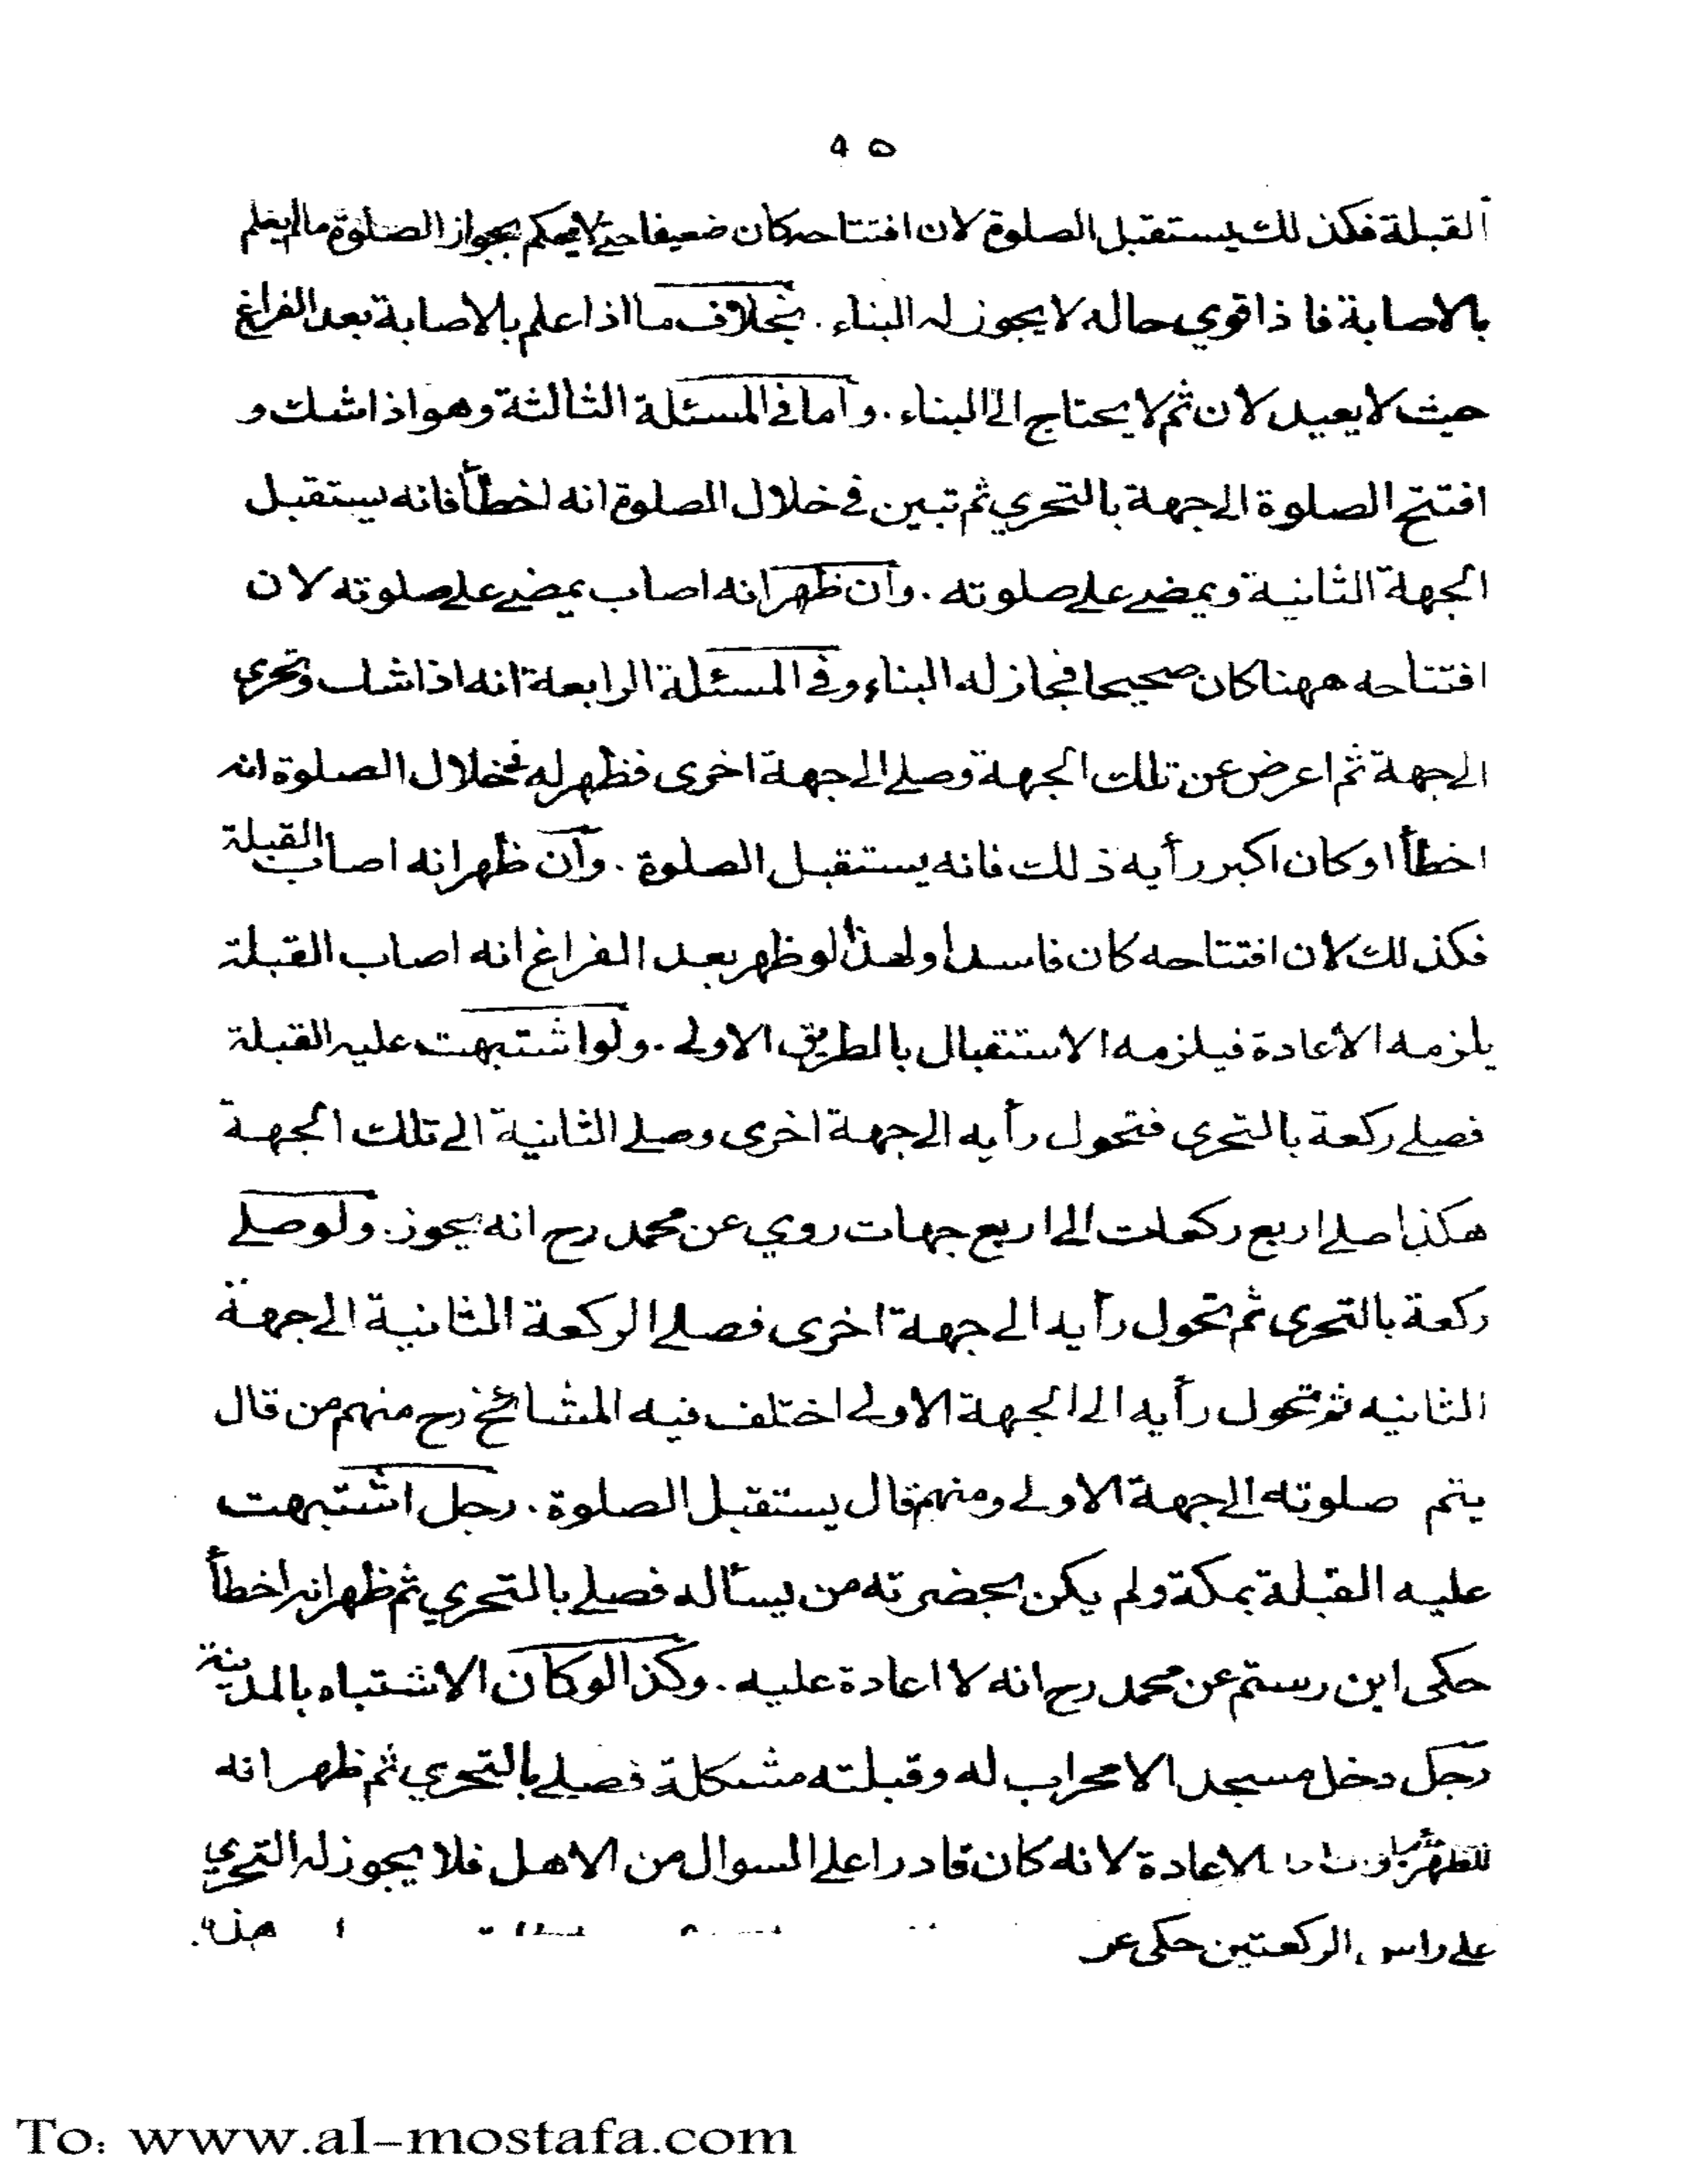 ٩٥
القبلة فكذلك يستقبل الصلوة لان افتتاحه كان ضعيفا حتى لا يحكم بجواز الصلوة ما لم يعلم
بالاصابة فاذا قوي حاله لا يجوز له البناء . بخلاف ما اذا علم بالاصابة بعد الفراغ
حيث لا يعيد لان ثم لا يحتاج الى البناء . واما في المسئلة الثالثة وهو اذا شك و
افتتح الصلوة الى جهة بالتحري ثم تبين في خلال الصلوة انه اخطأ فانه يستقبل
الجهة الثانية ويمضي على صلوته . وان ظهر انه اصاب يمضي على صلوته لان
افتتاحه ههنا كان صحيحا فجاز له البناء وفي المسئلة الرابعة انه اذا شك وتحرى
الى جهة ثم اعرض عن تلك الجهة وصلى الى جهة اخرى فظهر له في خلال الصلوة انه
اخطأ او كان اكبر رأيه ذلك فانه يستقبل الصلوة . وان ظهر انه اصاب القبلة
فكذلك لان افتتاحه كان فاسدا ولهذا لو ظهر بعد الفراغ انه اصاب القبلة
يلزمه الاعادة فيلزمه الاستقبال بالطريق الاولى . ولو اشتبهت عليه القبلة
فصلى ركعة بالتحرى فتحول رأيه الى جهة اخرى وصلى الثانية الى تلك الجهة
هكذا صلى اربع ركعات الى اربع جهات روي عن محمد رح انه يجوز . ولو صلى
ركعة بالتحرى ثم تحول رأيه الى جهة اخرى فصلى الركعة الثانية الى جهة
الثانيه ثم تحول رأيه الى الجهة الاولى اختلف فيه المشائخ رح منهم من قال
يتم صلوته الى جهة الاولى ومنهم قال يستقبل الصلوة . رجل اشتبهت
عليه القبلة بمكة ولم يكن بحضرته من يسأله فصلى بالتحري ثم ظهر انه اخطأ
حكى ابن رستم عن محمد رح انه لا اعادة عليه . وكذا لو كان الاشتباه بالمدينة
رجل دخل مسجدا لا محراب له وقبلته مشكلة فصلى بالتحري ثم ظهر انه
الاعادة لانه كان قادرا على السوال من الاهل فلا يجوز له التحري
على راس الركعتين حكى هذه
To: www.al-mostafa.com